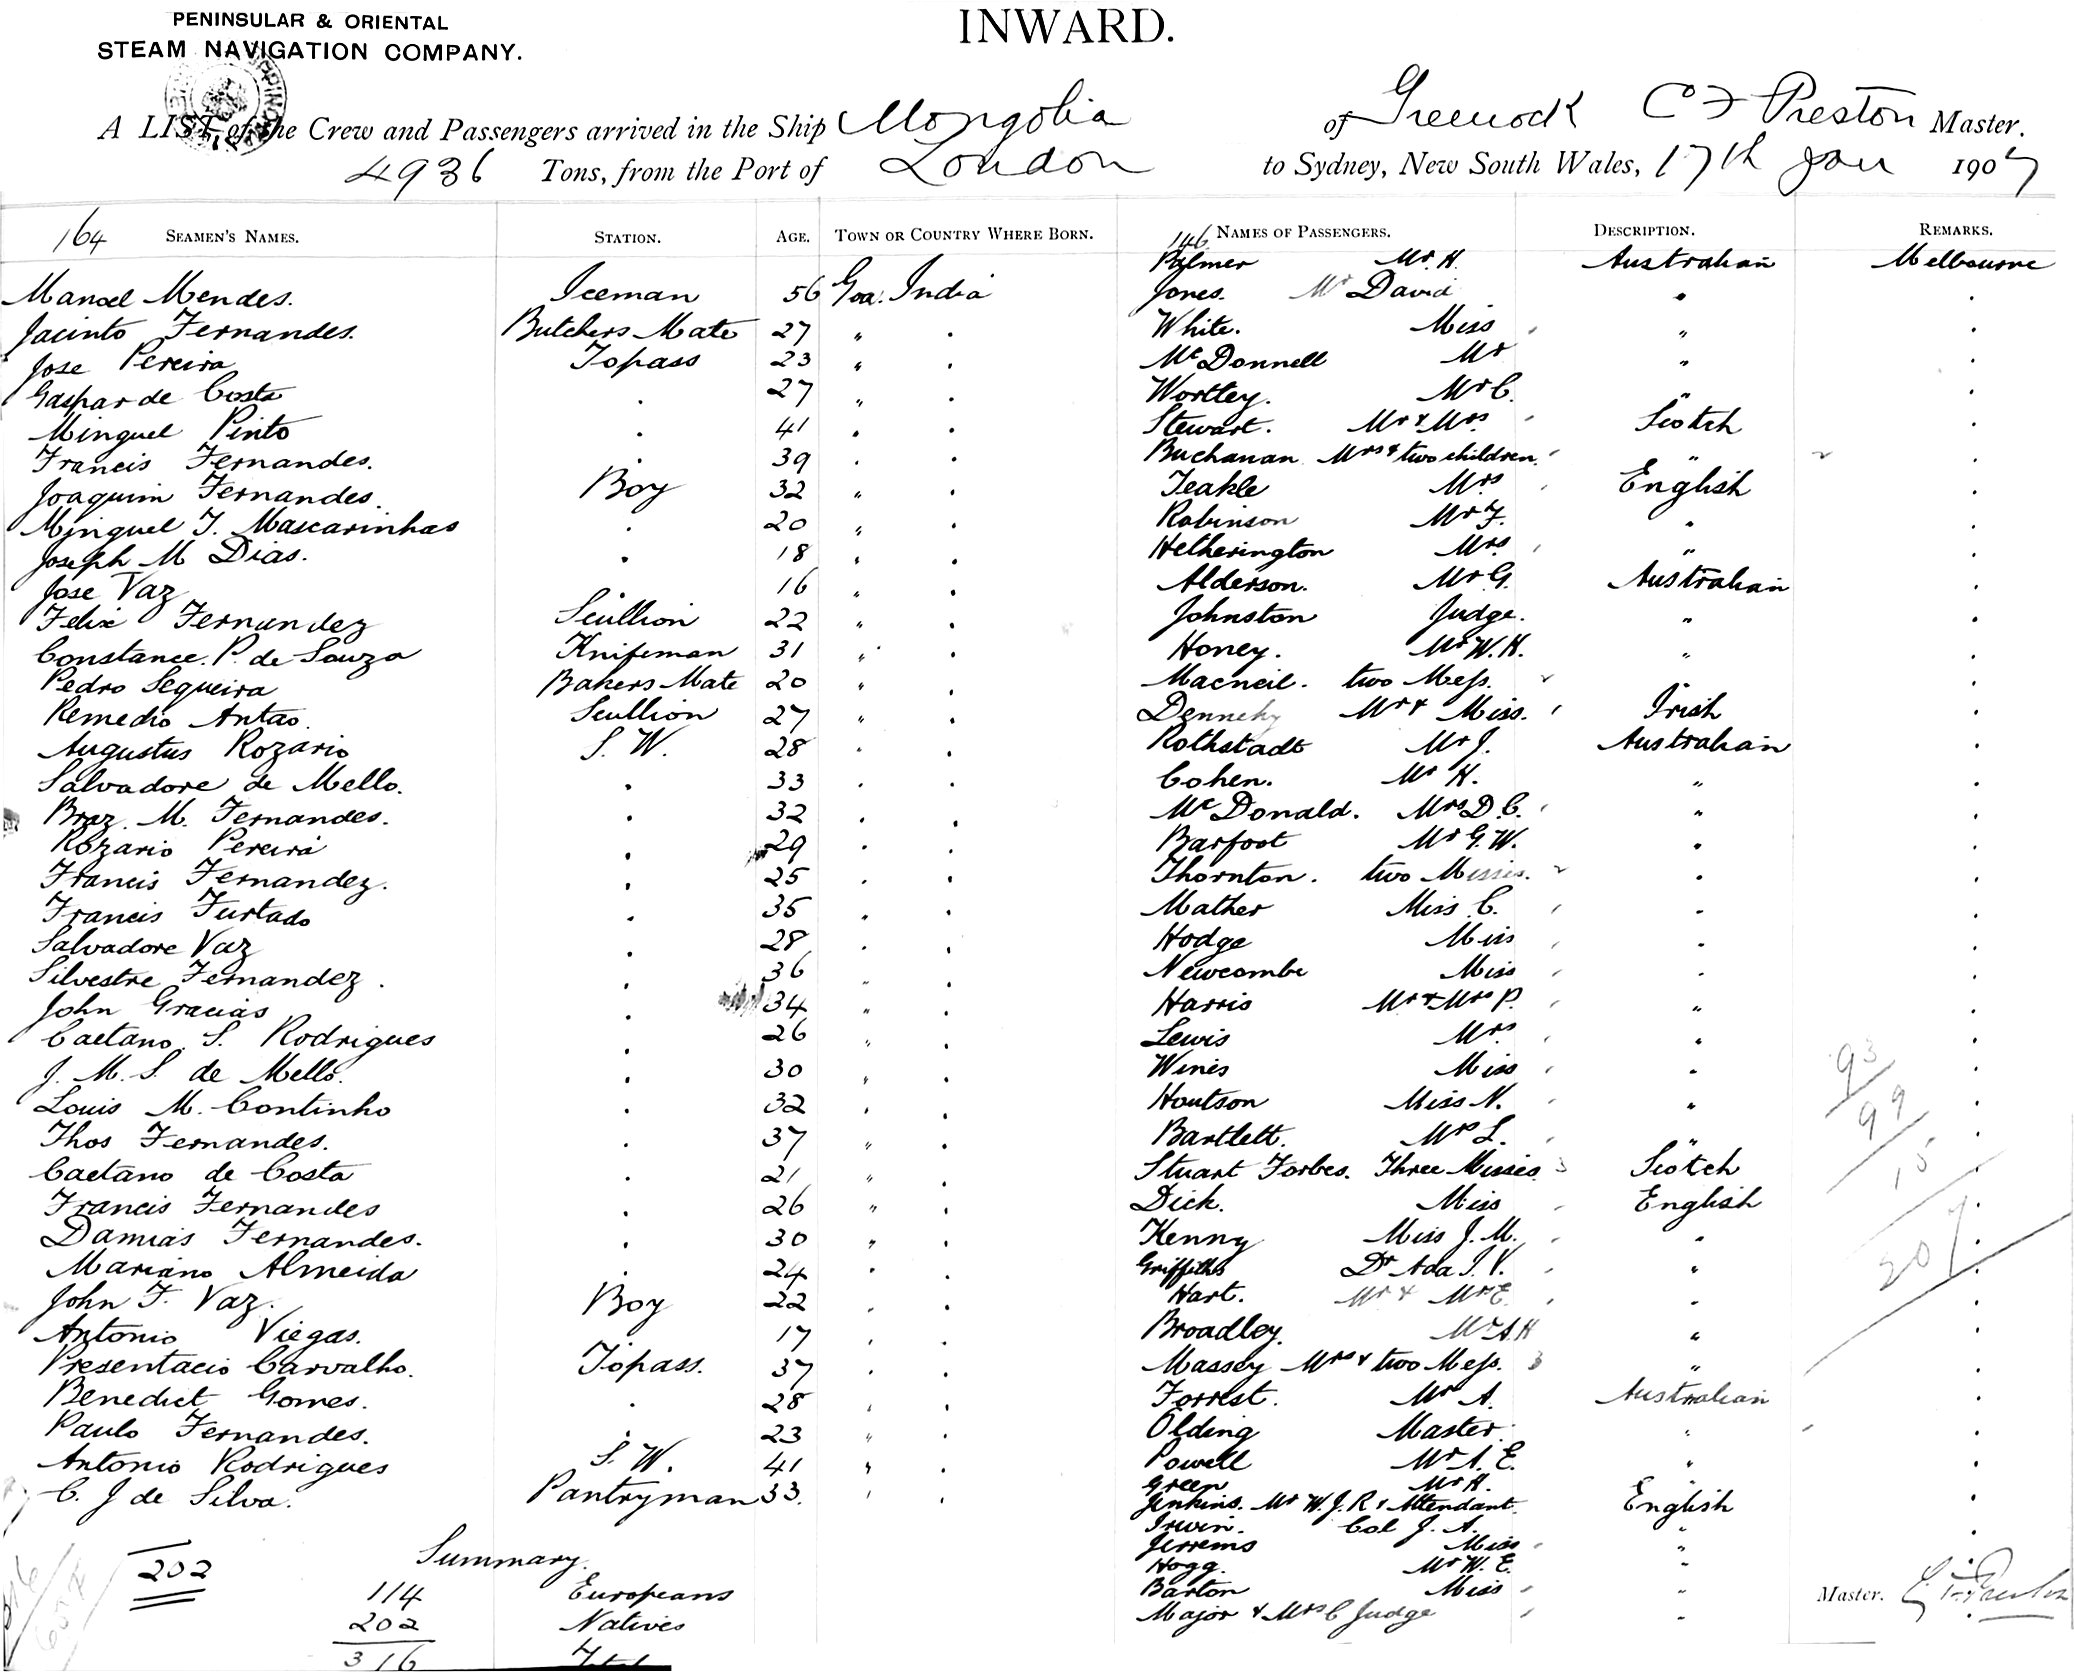 PENINSULAR & ORIENTAL
STEAM NAVIGATION COMPANY.
INWARD.
A LIST of the Crew and Passengers arrived in the Ship Mongolia of Greenock C F Preston Master.
4936 Tons, from the Port of London to Sydney, New South Wales, 17th Jan 1907
164 SEAMEN'S NAMES. STATION. AGE. TOWN OR COUNTRY WHERE BORN. 146 NAMES OF PASSENGERS. DESCRIPTION. REMARKS.
Palmer Mr. H. Australian Melbourne
Manoel Mendes. Iceman 56 Goa. India Jones. Mr David "
Jacinto Fernandes. Butchers Mate 27 " . White. Miss "
Jose Pereira Topass 23 " . McDonnell Mr "
Gaspar de Costa . 27 " . Wortley. Mr C. "
Minguel Pinto . 41 " . Stewart. Mr & Mrs Scotch
Francis Fernandes. . 39 " . Buchanan Mrs & two children. "
Joaquim Fernandes. Boy 32 " . Teakle Mrs English
Minguel T. Mascarinhas . 20 " . Robinson Mr F. "
Joseph M Dias. . 18 " . Hetherington Mrs "
Jose Vaz 16 " . Alderson. Mr G. Australian
Felix Fernandez Scullion 22 " . Johnston Judge. "
Constance. P. de Souza Knifeman 31 " . Honey. Mr W. H. "
Pedro Sequeira Bakers Mate 20 " . Macneil. two Mess.
Remedio Antao. Scullion 27 " . Dennehy Mr & Miss. Irish
Augustus Rozario S. W. 28 " . Rothstadt Mr J. Australian
Salvadore de Mello. . 33 . . Cohen. Mr H. "
Braz. M. Fernandes. . 32 . . McDonald. Mrs D. C. "
Rozario Pereira . 29 . . Barfoot Mr G. W. "
Francis Fernandez. . 25 . . Thornton. two Misses. .
Francis Furtado . 35 " . Mather Miss C. .
Salvadore Vaz . 28 . . Hodge Miss .
Silvestre Fernandez. . 36 " . Newcombe Miss .
John Gracias . 34 " . Harris Mr & Mrs P. "
Caetano. S. Rodrigues . 26 " . Lewis Mrs "
J. M. S. de Mello. . 30 " . Wines Miss . 93
Louis M. Continho . 32 . . Houtson Miss N. " 99
Thos Fernandes. . 37 " . Bartlett. Mrs L. "
Caetano de Costa . 21 " . Stuart Forbes. Three Misses. 3 Scotch 15
Francis Fernandes . 26 " . Dick. Miss English
Damias Fernandes. . 30 " . Kenny Miss J. M. " 207
Mariano Almeida . 24 . . Griffiths Dr Ada I. V. "
John F. Vaz. Boy 22 . . Hart. Mr & Mrs E. "
Antonio Viegas. 17 . . Broadley. Mr A. H "
Presentacio Carvalho. Topass. 37 . . Massey Mrs & two Mess. 3 "
Benedict Gomes. . 28 . . Forrest. Mr A. Australian
Paulo Fernandes. . 23 " . Olding Master "
Antonio Rodrigues S. W. 41 " . Powell Mr A. E. "
Green Mr H.
C. J de Silva. Pantryman 33. " . Jenkins. Mr W. J. R & Attendant. English
Irwin. Col J. A. "
Summary. Jerrems Miss
202 Hogg. Mr W. E. "
114 Europeans Barton Miss " Master. C. F. Preston
202 Natives Major & Mrs C Judge "
316 Total